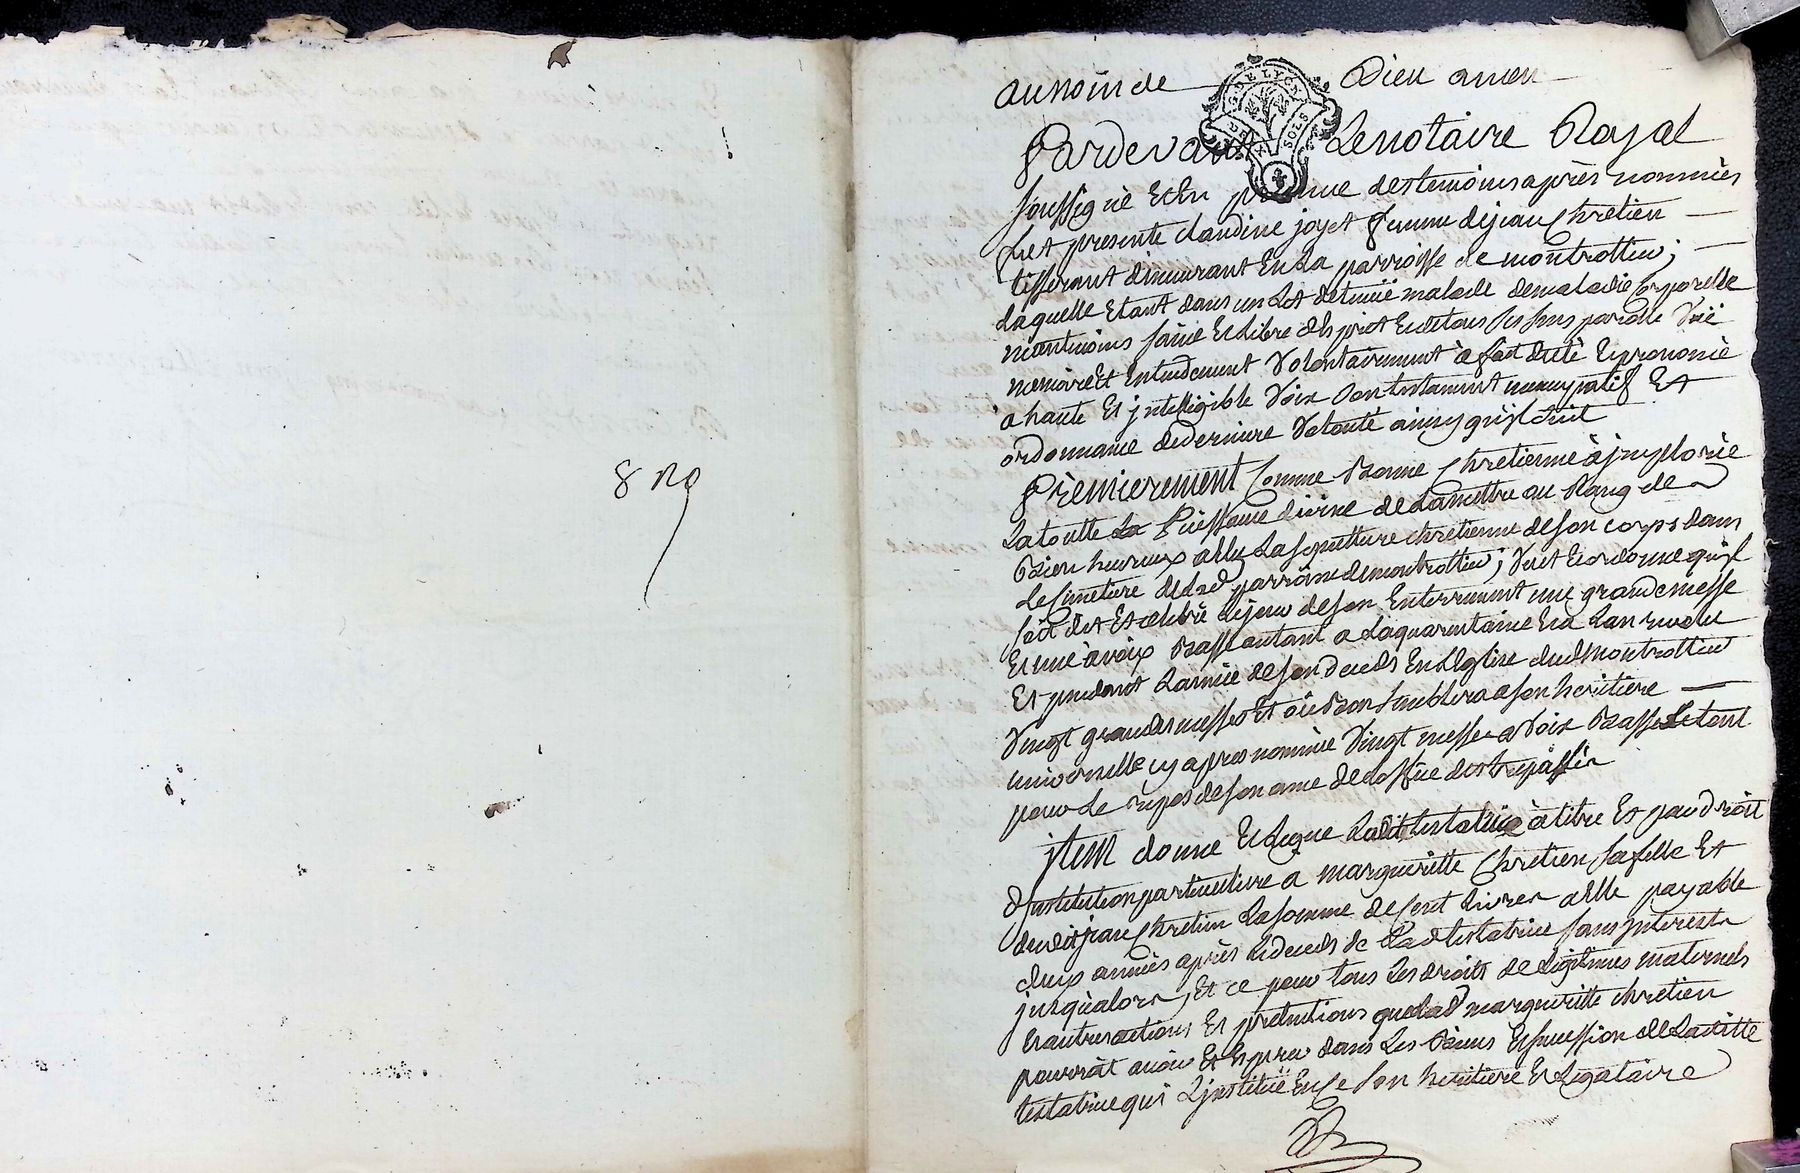 8 ng
au nom de Dieu amen
G. DE LYON DEUX SOLS
Pardevant Le notaire Royal
soussigné et en presence des temoins après nommés
fut presente claudine joyet femme de jean chretien
tisserant demeurant en la parroisse de montrottier;
Laquelle Etant dans un Lit detenüe malade de maladie corporelle
neantmoins saine et Libre d'esprit et de tous ses sens parolle Vüe
memoire Et Entendement Volontairement à fait dicté et prononcé
a haute Et jntelligible Voix son testament nuncupatif Et
ordonnance de derniere Volonté ainsy qu'il suit
Premierement comme Bonne chretienne à jmploré
La toutte La Puissance divine de L'amettre au Rang des
Bien heureux a elu La sepulture chretienne de son corps dans
Le cimetiere de Lad parroisse de montrottier; Veut et ordonne qu'il
soit dit Et celebré Le jour de son Enterrement une grande messe
et une à voix Basse autant a La quarantaine et a L'an revolu
Et pendant L'année de son deceds En L'Eglise dud montrottier
Vingt grandes messes Et où Bon semblera a son heritiere
universelle cy apres nommée Vingt messes a Voix Basse Le tout
pour Le repos de son ame de L'office des trepassés
jtem donne et Legue Ladite testatrice à titre Et par droit
d'jnstitution particuliere a margueritte chretien sa fille Et
dudit jean chretien La somme de Cent Livres a elle payable
deux années après Le deceds de Lad testatrice sans jnterests
jusqu'alors, Et ce pour tous Les droits de Legitimes maternels
et autres actions Et pretentions que Lad margueritte chretien
pourroit avoir Et Esperer dans Les Biens et succession de Laditte
testatrice qui L'jnstitüe En ce son heritiere et Legataire